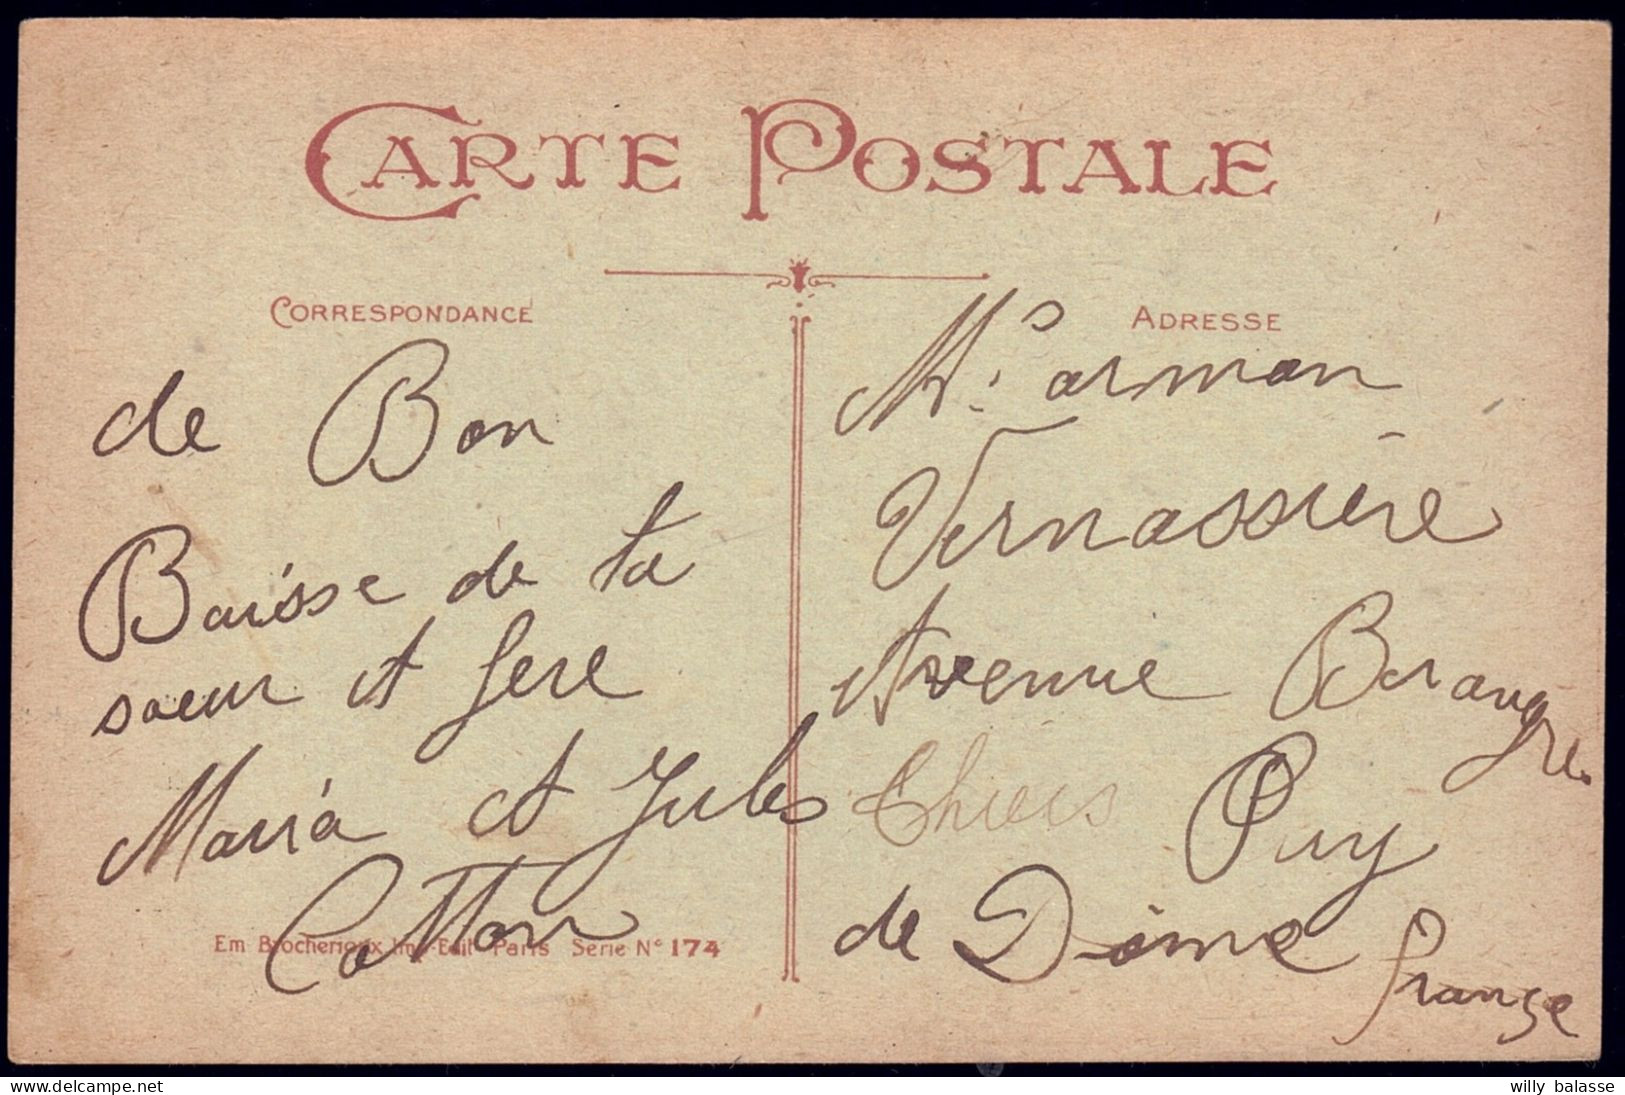 CARTE POSTALE
CORRESPONDANCE
de Bon
Baisse de ta
soeur et fere
Maria et Jules
Cotton
Em Brocherioux Imp-Edit Paris Serie N° 174
ADRESSE
Mr. arman
Vernassière
Avenue Berangre
Thiers Puy
de Dome
franse
willy balasse